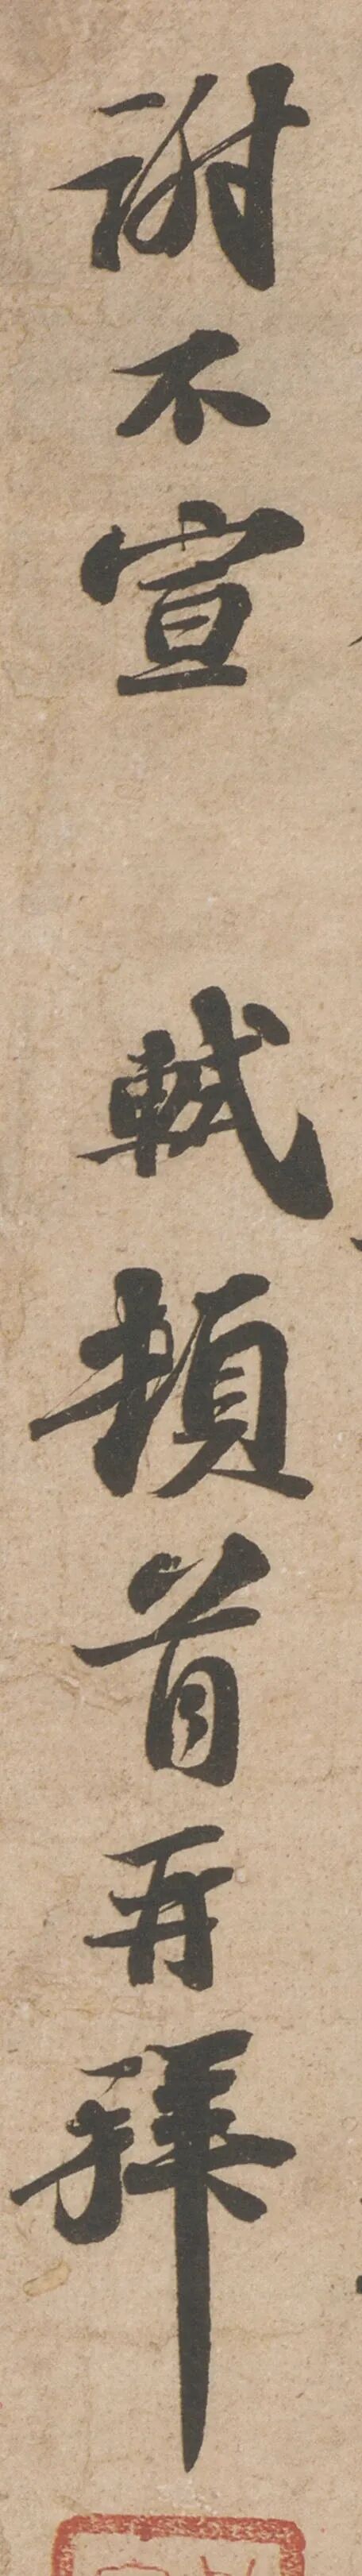 謝不宣 軾頓首再拜